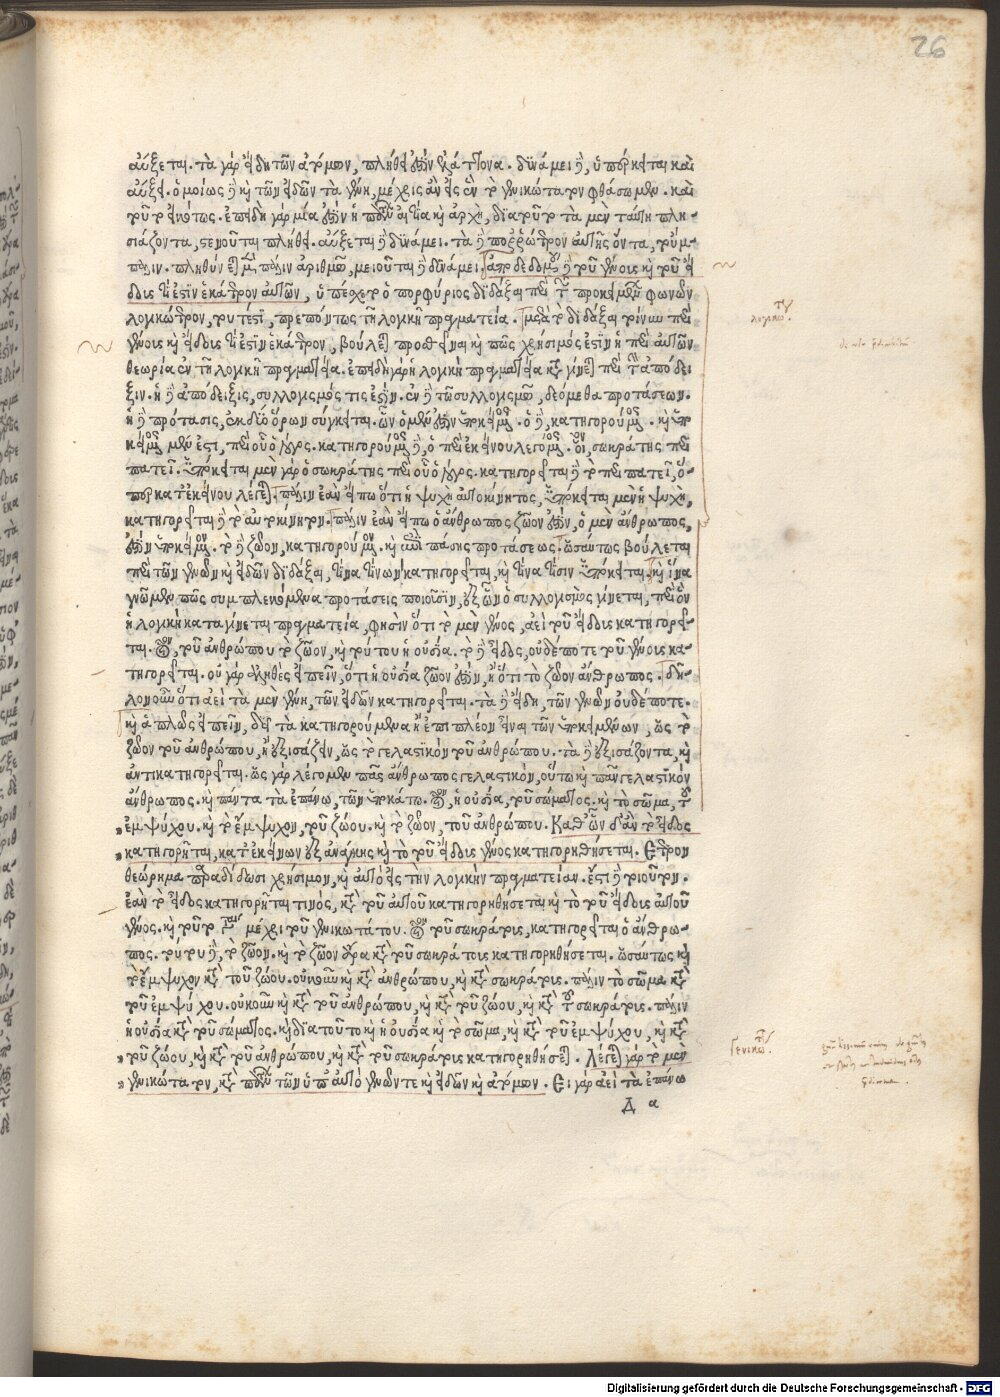 26
αὔξεται. τὰ γὰρ εἴδη τῶν ἀτόμων, πλήθει ἐστὶν ἐλάττονα. δυνάμει δὲ, ὑπέρκειται καὶ
αὔξει. ὁμοίως δὲ καὶ τῶν εἰδῶν τὰ γένη, μέχρις ἂν εἰς ἓν τὸ γενικώτατον φθάσωμεν. καὶ
τοῦτο εἰκότως. ἐπειδὴ γὰρ μία ἐστὶν ἡ πάντων αἰτία καὶ ἀρχὴ, διὰ τοῦτο τὰ μὲν ταύτῃ πλη-
σιάζοντα, στενοῦται πλήθει. αὔξεται δὲ δυνάμει. τὰ δὲ πορρώτερον αὐτῆς ὄντα, τοὔμ-
παλιν. πληθύνεται μὲν πάλιν ἀριθμῷ, μειοῦται δὲ δυνάμει. ἀποδεδομένου δὲ τοῦ γένους καὶ τοῦ εἴ
δους τί ἐστὶν ἑκάτερον αὐτῶν, ὑπέσχετο ὁ πορφύριος διδάξαι περὶ τῶν προκειμένων φωνῶν
λογικώτερον, τουτέστι, πρεπόντως τῇ λογικῇ πραγματεία. μετὰ τὸ διδάξαι τοίνυν περὶ
γένους καὶ εἴδους τί ἐστὶν ἑκάτερον, βούλεται προσθεῖναι καὶ πῶς χρήσιμός ἐστιν ἡ περὶ αὐτῶν
θεωρία ἐν τῇ λογικῇ πραγματεία. ἐπειδὴ γὰρ ἡ λογικὴ πραγματεία καταγίνεται περὶ τὴν ἀπόδει
ξιν. ἡ δὲ ἀπόδειξις, συλλογισμός τις ἐστίν. ἐν δὲ τῷ συλλογισμῷ, δεόμεθα προτάσεων.
ἡ δὲ πρότασις, ἐκ δύο ὅρων σύγκειται. ὧν ὁ μέν ἐστιν ὑποκείμενος. ὁ δὲ, κατηγορούμενος. καὶ ὑπο
κείμενος μέν ἐστι, περὶ οὗ ὁ λόγος. κατηγορούμενος δὲ, ὁ περὶ ἐκείνου λεγόμενος. οἷον, σωκράτης περι
πατεῖ. ὑπόκειται μὲν γὰρ ὁ σωκράτης περὶ οὗ ὁ λόγος. κατηγορεῖται δὲ τὸ περιπατεῖ, ὅ-
περ κατ' ἐκείνου λέγεται. πάλιν ἐὰν εἴπω ὅτι ἡ ψυχὴ αὐτοκίνητος, ὑπόκειται μὲν ἡ ψυχὴ,
κατηγορεῖται δὲ τὸ αὐτοκίνητον. πάλιν ἐὰν εἴπω ὁ ἄνθρωπος ζῷον ἐστὶν, ὁ μὲν ἄνθρωπος,
ἐστὶν ὑποκείμενος. τὸ δὲ ζῷον, κατηγορούμενον. καὶ ἐπὶ πάσης προτάσεως. ὡσαύτως βούλεται
περὶ τῶν γενῶν καὶ εἰδῶν διδάξαι, τίνα τίνων κατηγορεῖται, καὶ τίνα τίσιν ὑπόκειται. καὶ ἵνα
γνῶμεν πῶς συμπλεκόμενα προτάσεις ποιοῦσιν, ἐξ ὧν ὁ συλλογισμὸς γίνεται, περὶ ὃν
ἡ λογικὴ καταγίνεται πραγματεία, φησὶν ὅτι τὸ μὲν γένος, ἀεὶ τοῦ εἴδους κατηγορεῖ-
ται. οἷον, τοῦ ἀνθρώπου τὸ ζῷον, καὶ τούτου ἡ οὐσία. τὸ δὲ εἶδος, οὐδέποτε τοῦ γένους κα-
τηγορεῖται. οὐ γὰρ ἀληθὲς εἰπεῖν, ὅτι ἡ οὐσία ζῷον ἐστὶν, ἢ ὅτι τὸ ζῷον ἄνθρωπος. δῆ-
λον οὖν ὅτι ἀεὶ τὰ μὲν γένη, τῶν εἰδῶν κατηγορεῖται. τὰ δὲ εἴδη, τῶν γενῶν οὐδέποτε.
καὶ ἁπλῶς εἰπεῖν, δεῖ τὰ κατηγορούμενα ἢ ἐπιπλέον εἶναι τῶν ὑποκειμένων, ὡς τὸ
ζῷον τοῦ ἀνθρώπου, ἢ ἐξισάζειν, ὡς τὸ γελαστικὸν τοῦ ἀνθρώπου. τὰ δὲ ἐξισάζοντα, καὶ
ἀντικατηγορεῖται. ὡς γὰρ λέγομεν πᾶς ἄνθρωπος γελαστικὸν, οὕτω καὶ πᾶν γελαστικὸν
ἄνθρωπος. καὶ πάντα τὰ ἐπάνω, τῶν ὑποκάτω. οἷον, ἡ οὐσία, τοῦ σώματος. καὶ τὸ σῶμα, τοῦ
ἐμψύχου. καὶ τὸ ἔμψυχον, τοῦ ζῴου. καὶ τὸ ζῷον, τοῦ ἀνθρώπου. Καθ' ὧν δ' ἂν τὸ εἶδος
κατηγορῆται, κατ' ἐκείνων ἐξ ἀνάγκης καὶ τὸ τοῦ εἴδους γένος κατηγορηθήσεται. Ἕτερον
θεώρημα παραδίδωσι χρήσιμον, καὶ αὐτὸ εἰς τὴν λογικὴν πραγματείαν. ἔστι δὲ τοιοῦτον.
ἐὰν τὸ εἶδος κατηγορῆται τινὸς, κατὰ τοῦ αὐτοῦ κατηγορηθήσεται καὶ τὸ τοῦ εἴδους αὐτοῦ
γένος. καὶ τοῦτο μέχρι τοῦ γενικωτάτου. οἷον τοῦ σωκράτους, κατηγορεῖται ὁ ἄνθρω-
πος. τούτου δὲ, τὸ ζῷον. καὶ τὸ ζῷον ἄρα κατὰ τοῦ σωκράτους κατηγορηθήσεται. ὡσαύτως καὶ
τὸ ἔμψυχον κατὰ τοῦ ζῴου. οὐκοῦν καὶ κατὰ ἀνθρώπου, καὶ κατὰ σωκράτους. πάλιν τὸ σῶμα κατὰ
τοῦ ἐμψύχου. οὐκοῦν καὶ κατὰ τοῦ ἀνθρώπου, καὶ κατὰ τοῦ ζῴου, καὶ κατὰ τοῦ σωκράτους. πάλιν
ἡ οὐσία κατὰ τοῦ σώματος. καὶ διὰ τοῦτο καὶ ἡ οὐσία καὶ τὸ σῶμα, καὶ κατὰ τοῦ ἐμψύχου, καὶ κατὰ
τοῦ ζῴου, καὶ κατὰ τοῦ ἀνθρώπου, καὶ κατὰ τοῦ σωκράτους κατηγορηθήσεται. Λέγεται γὰρ τὸ μὲν
γενικώτατον, κατὰ πάντων τῶν ὑπ' αὐτὸ γενῶν τε καὶ εἰδῶν καὶ ἀτόμων. Εἰ γὰρ ἀεὶ τὰ ἐπάνω
Δ α
Digitalisierung gefördert durch die Deutsche Forschungsgemeinschaft - DFG